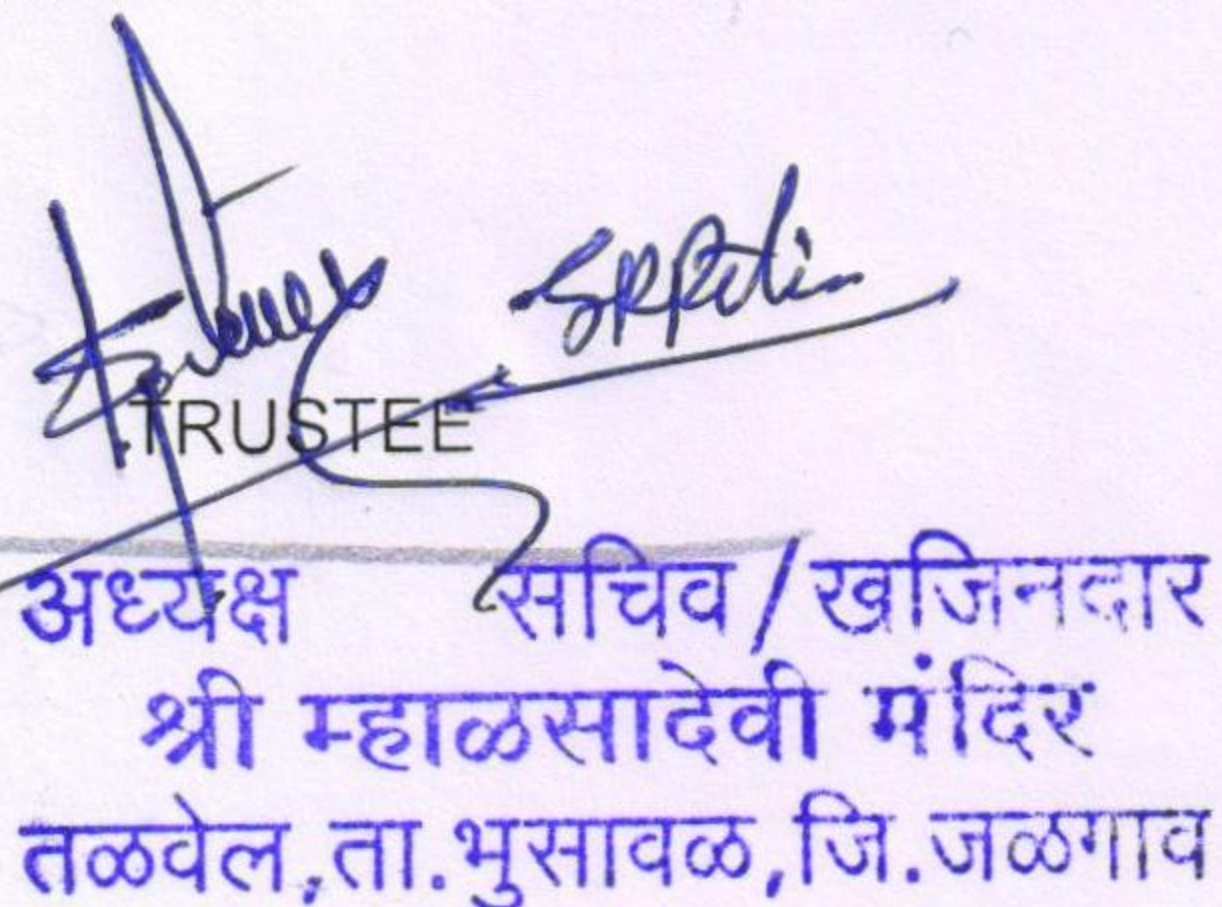 TRUSTEE
अध्यक्ष सचिव/खजिनदार
श्री म्हाळसादेवी मंदिर
तळवेल,ता.भुसावळ,जि.जळगाव